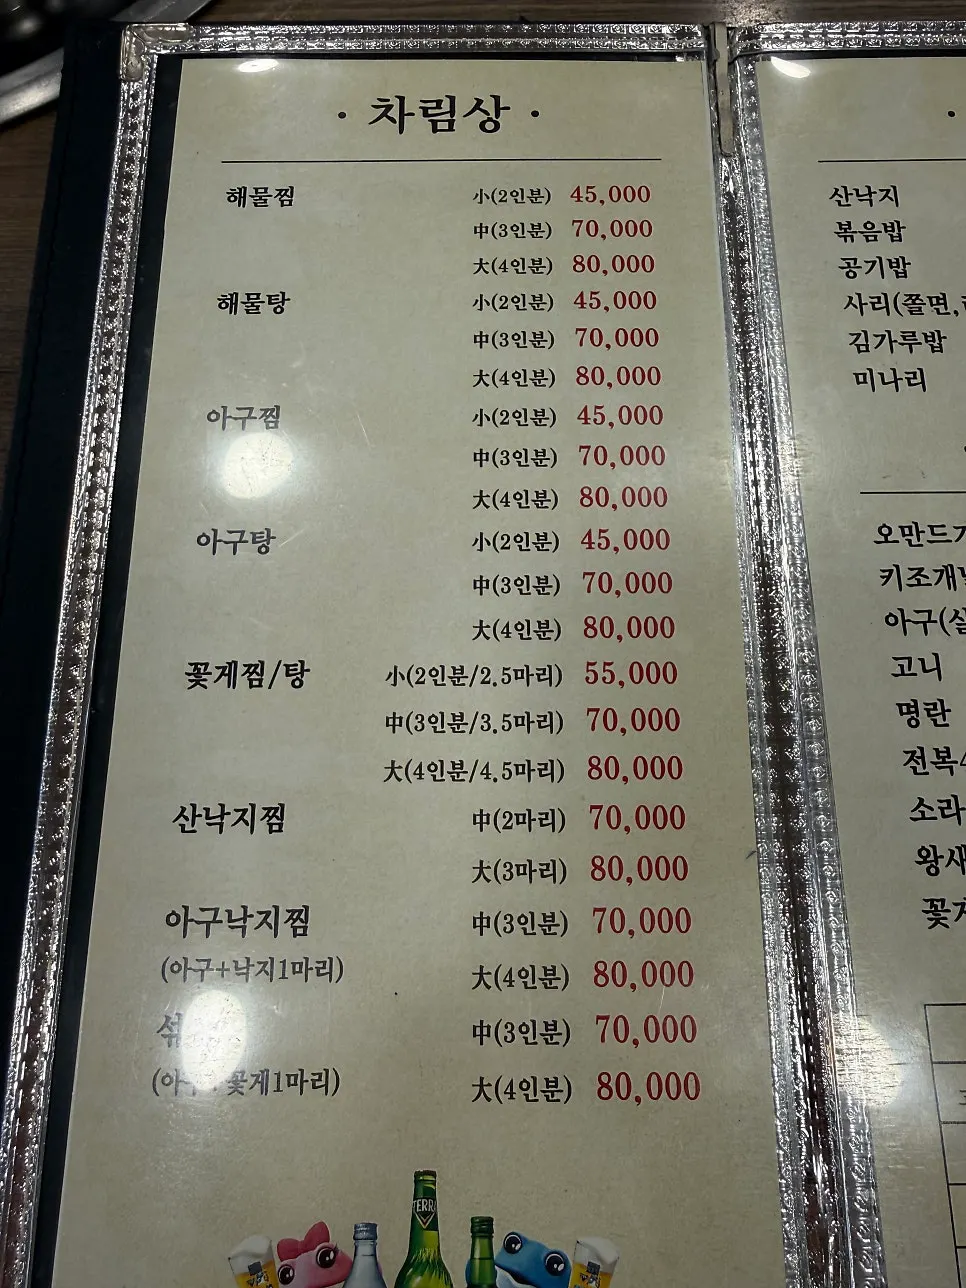 · 차림상 ·
해물찜 小(2인분) 45,000
中(3인분) 70,000
大(4인분) 80,000
해물탕 小(2인분) 45,000
中(3인분) 70,000
大(4인분) 80,000
아구찜 小(2인분) 45,000
中(3인분) 70,000
大(4인분) 80,000
아구탕 小(2인분) 45,000
中(3인분) 70,000
大(4인분) 80,000
꽃게찜/탕 小(2인분/2.5마리) 55,000
中(3인분/3.5마리) 70,000
大(4인분/4.5마리) 80,000
산낙지찜 中(2마리) 70,000
大(3마리) 80,000
아구낙지찜 中(3인분) 70,000
(아구+낙지1마리) 大(4인분) 80,000
中(3인분) 70,000
꽃게1마리) 大(4인분) 80,000
TERRA
산낙지
볶음밥
공기밥
사리(쫄면,
김가루밥
미나리
오만드
키조개
아구(
고니
명란
전복
소라
왕새